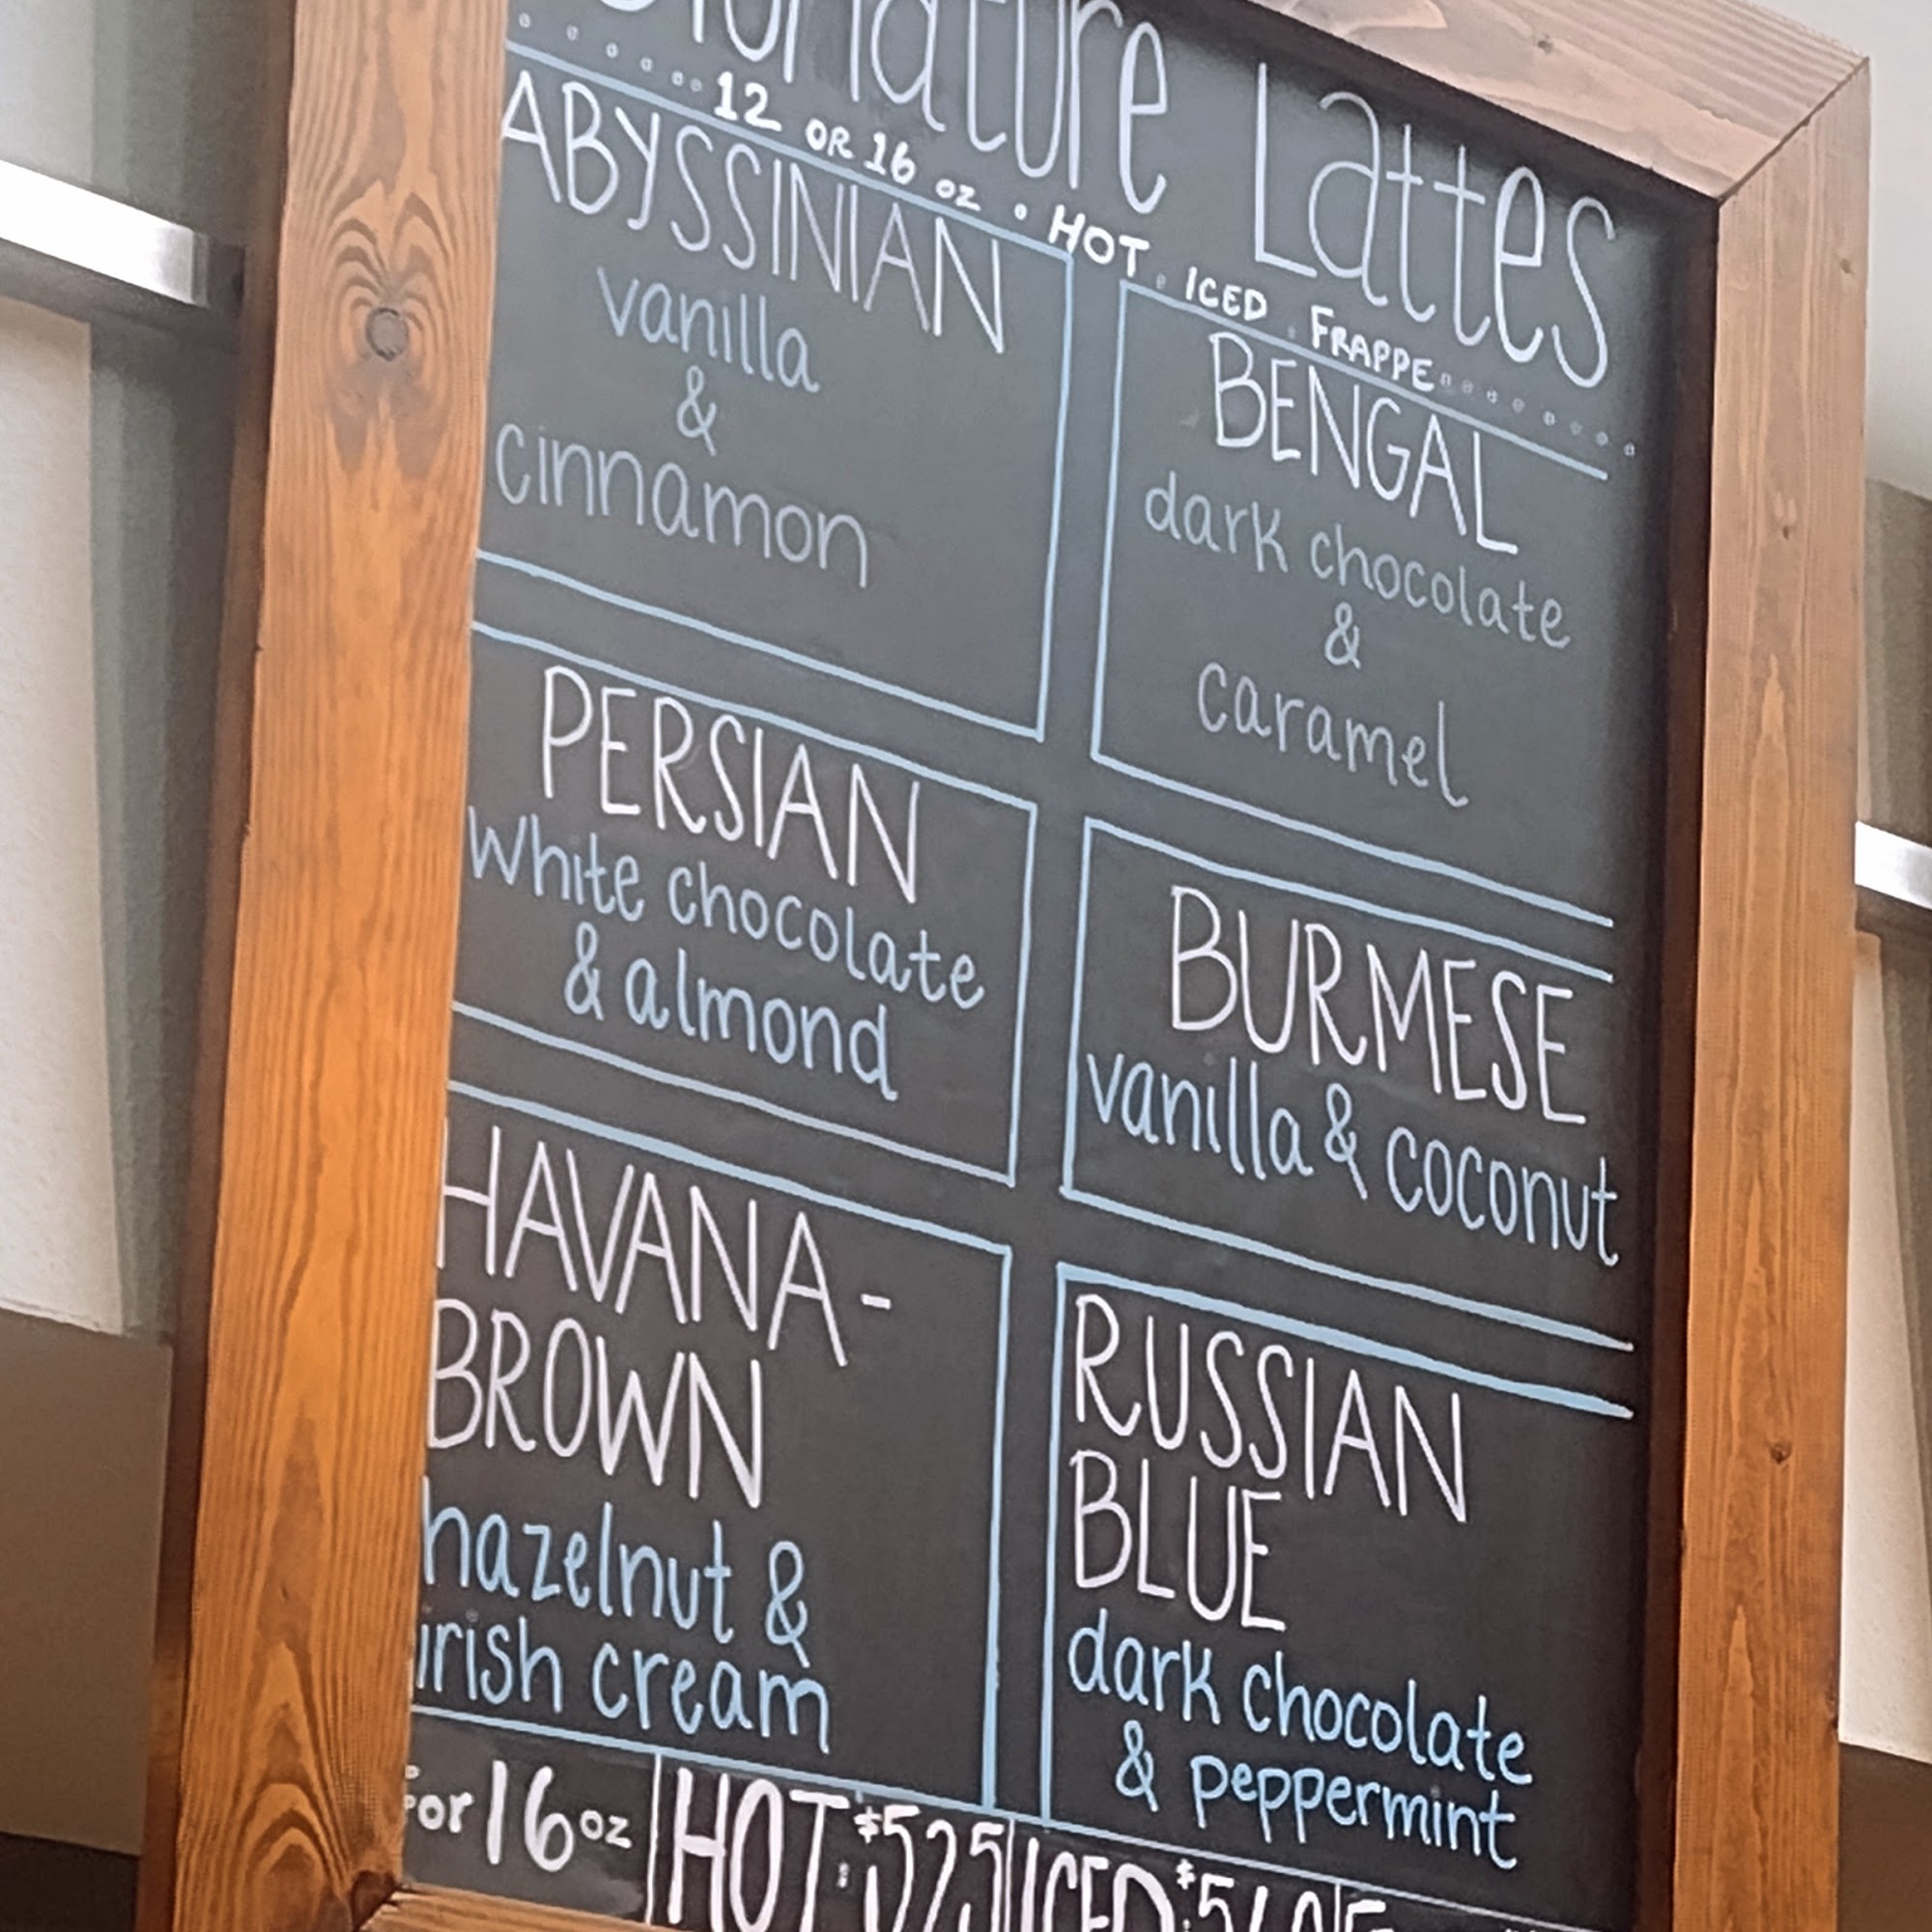 Signature Lattes
12 OR 16 oz • HOT • ICED • FRAPPE
ABYSSINIAN
vanilla
&
cinnamon
BENGAL
dark chocolate
&
caramel
PERSIAN
white chocolate
& almond
BURMESE
vanilla & coconut
HAVANA-
BROWN
hazelnut &
irish cream
RUSSIAN
BLUE
dark chocolate
& peppermint
For 16 oz | HOT: $5.25 | ICED: